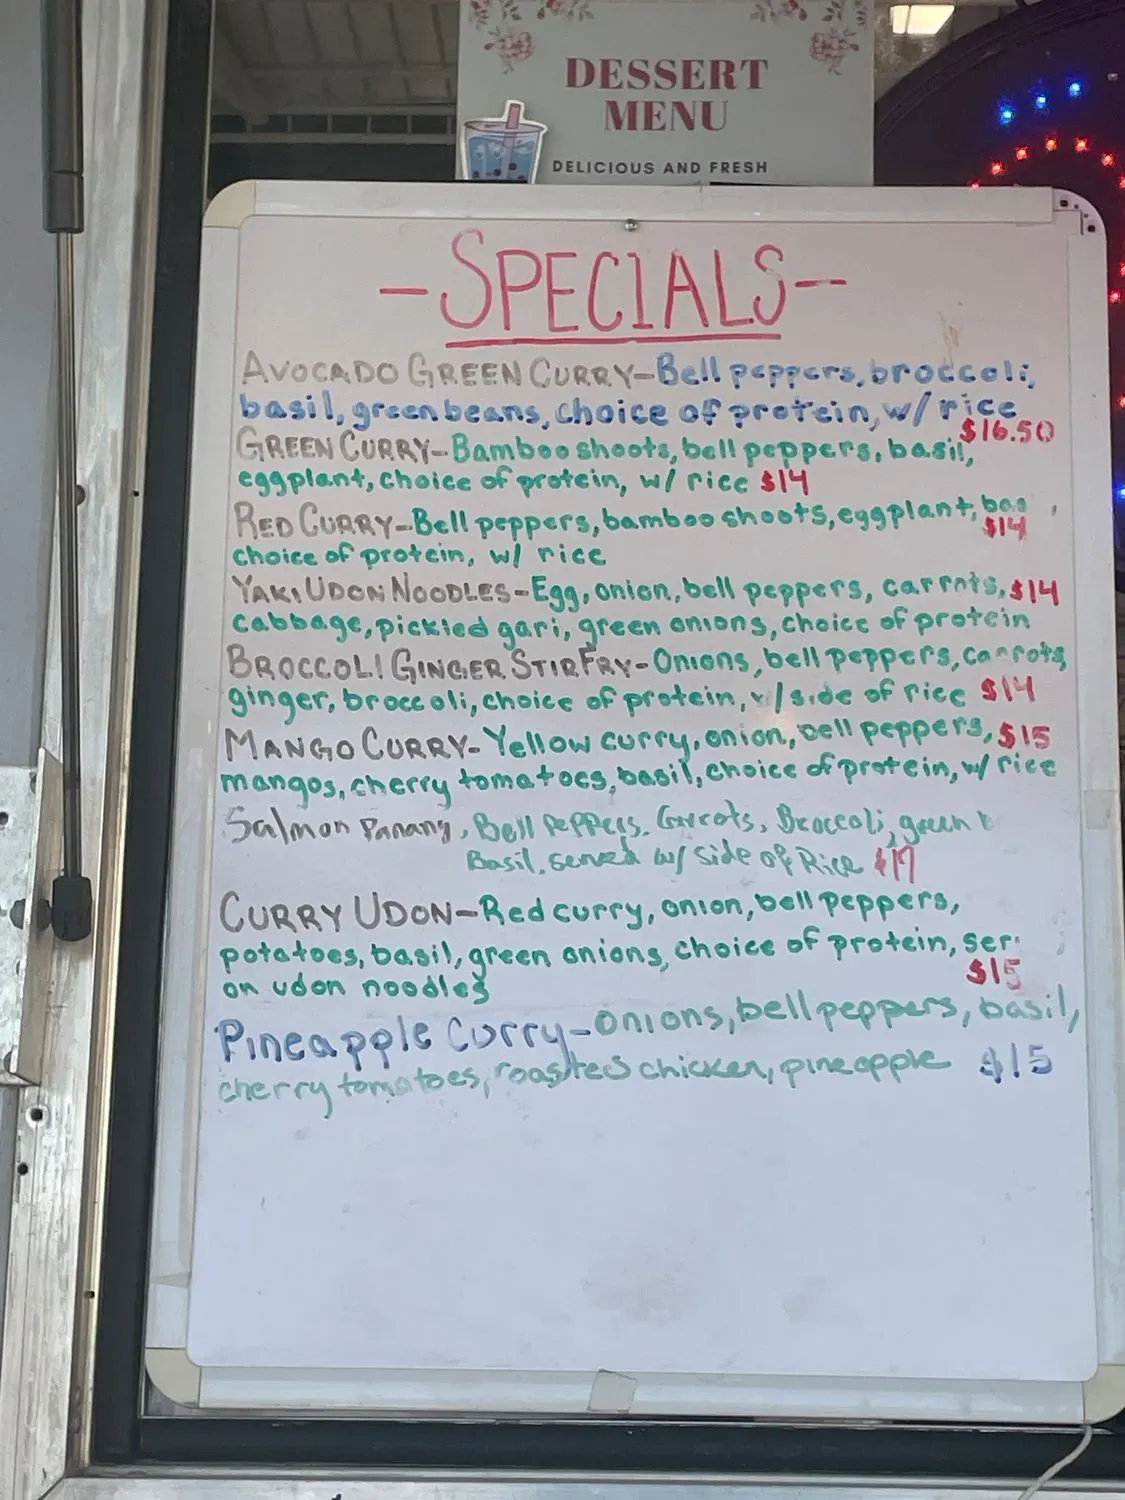 DESSERT
MENU
DELICIOUS AND FRESH
-SPECIALS-
AVOCADO GREEN CURRY-Bell peppers, broccoli,
basil, green beans, choice of protein, w/ rice
$16.50
GREEN CURRY-Bamboo shoots, bell peppers, basil,
eggplant, choice of protein, w/ rice $14
RED CURRY-Bell peppers, bamboo shoots, eggplant,
$14
choice of protein, w/ rice
YAKI UDON NOODLES-Egg, onion, bell peppers, carrots, $14
cabbage, pickled gari, green onions, choice of protein
BROCCOLI GINGER STIR FRY-Onions, bell peppers, carrots,
ginger, broccoli, choice of protein, w/ side of rice $14
MANGO CURRY-Yellow curry, onion, bell peppers, $15
mangos, cherry tomatoes, basil, choice of protein, w/ rice
Salmon Panang, Bell Peppers, Carrots, Broccoli, green
Basil, served w/ side of Rice $17
CURRY UDON-Red curry, onion, bell peppers,
potatoes, basil, green onions, choice of protein,
$15
on udon noodles
Pineapple Curry-onions, bell peppers, basil,
cherry tomatoes, roasted chicken, pineapple $15